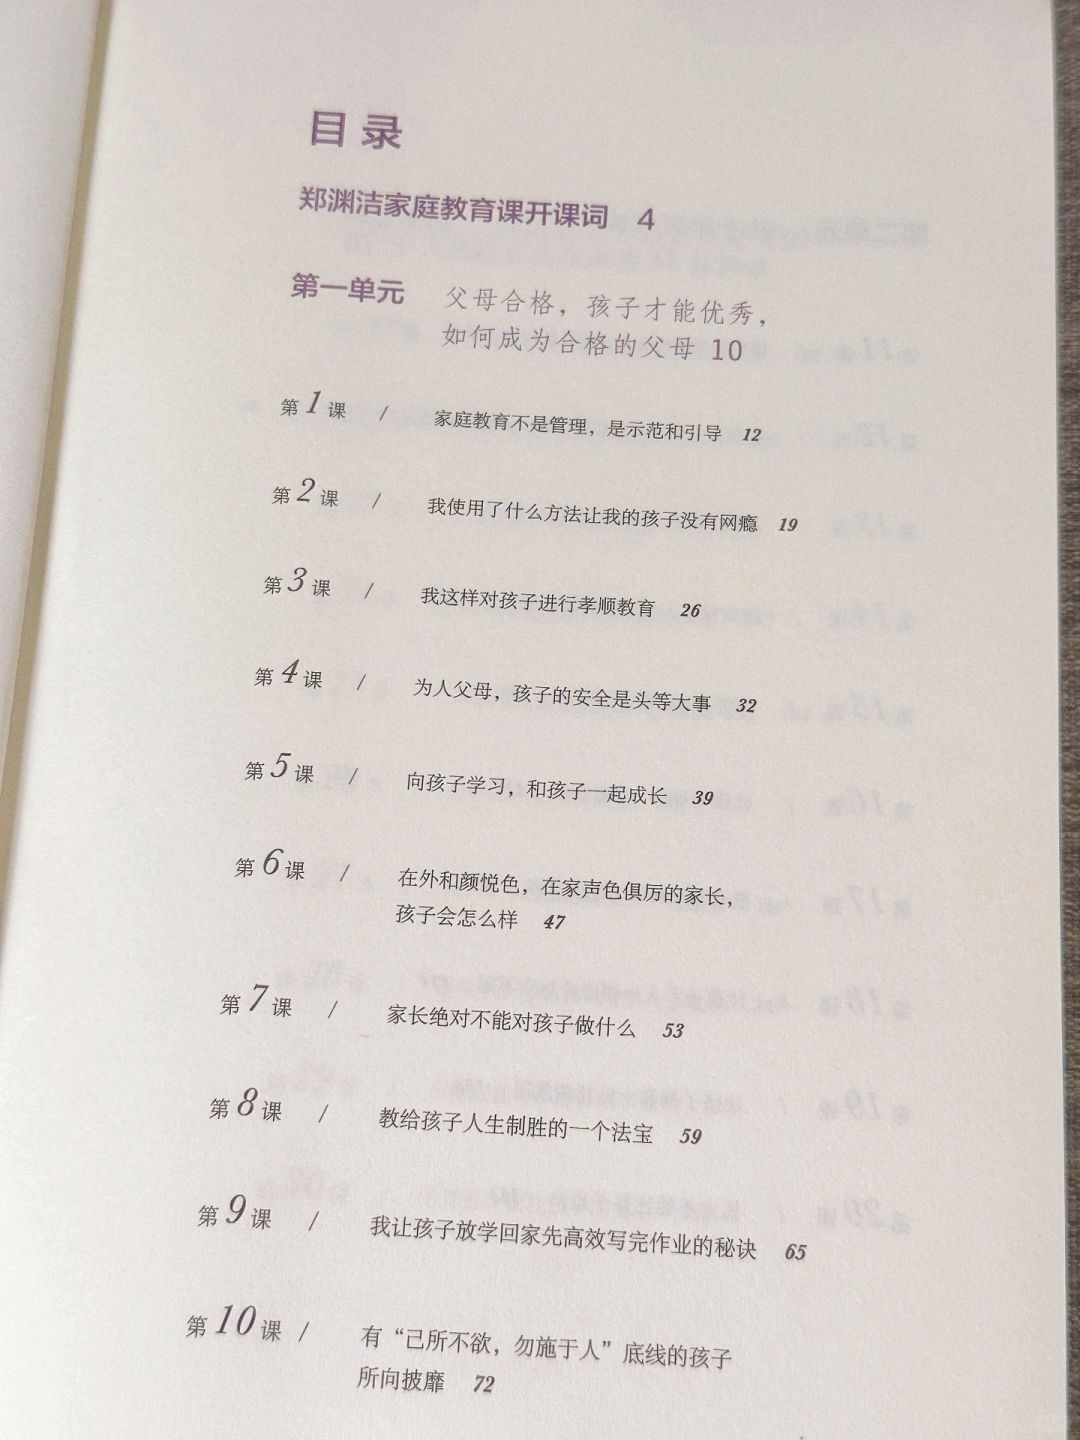 目录
郑渊洁家庭教育课开课词 4
第一单元 父母合格，孩子才能优秀，
如何成为合格的父母 10
第1课 / 家庭教育不是管理，是示范和引导 12
第2课 / 我使用了什么方法让我的孩子没有网瘾 19
第3课 / 我这样对孩子进行孝顺教育 26
第4课 / 为人父母，孩子的安全是头等大事 32
第5课 / 向孩子学习，和孩子一起成长 39
第6课 / 在外和颜悦色，在家声色俱厉的家长，
孩子会怎么样 47
第7课 / 家长绝对不能对孩子做什么 53
第8课 / 教给孩子人生制胜的一个法宝 59
第9课 / 我让孩子放学回家先高效写完作业的秘诀 65
第10课 / 有“己所不欲，勿施于人”底线的孩子
所向披靡 72